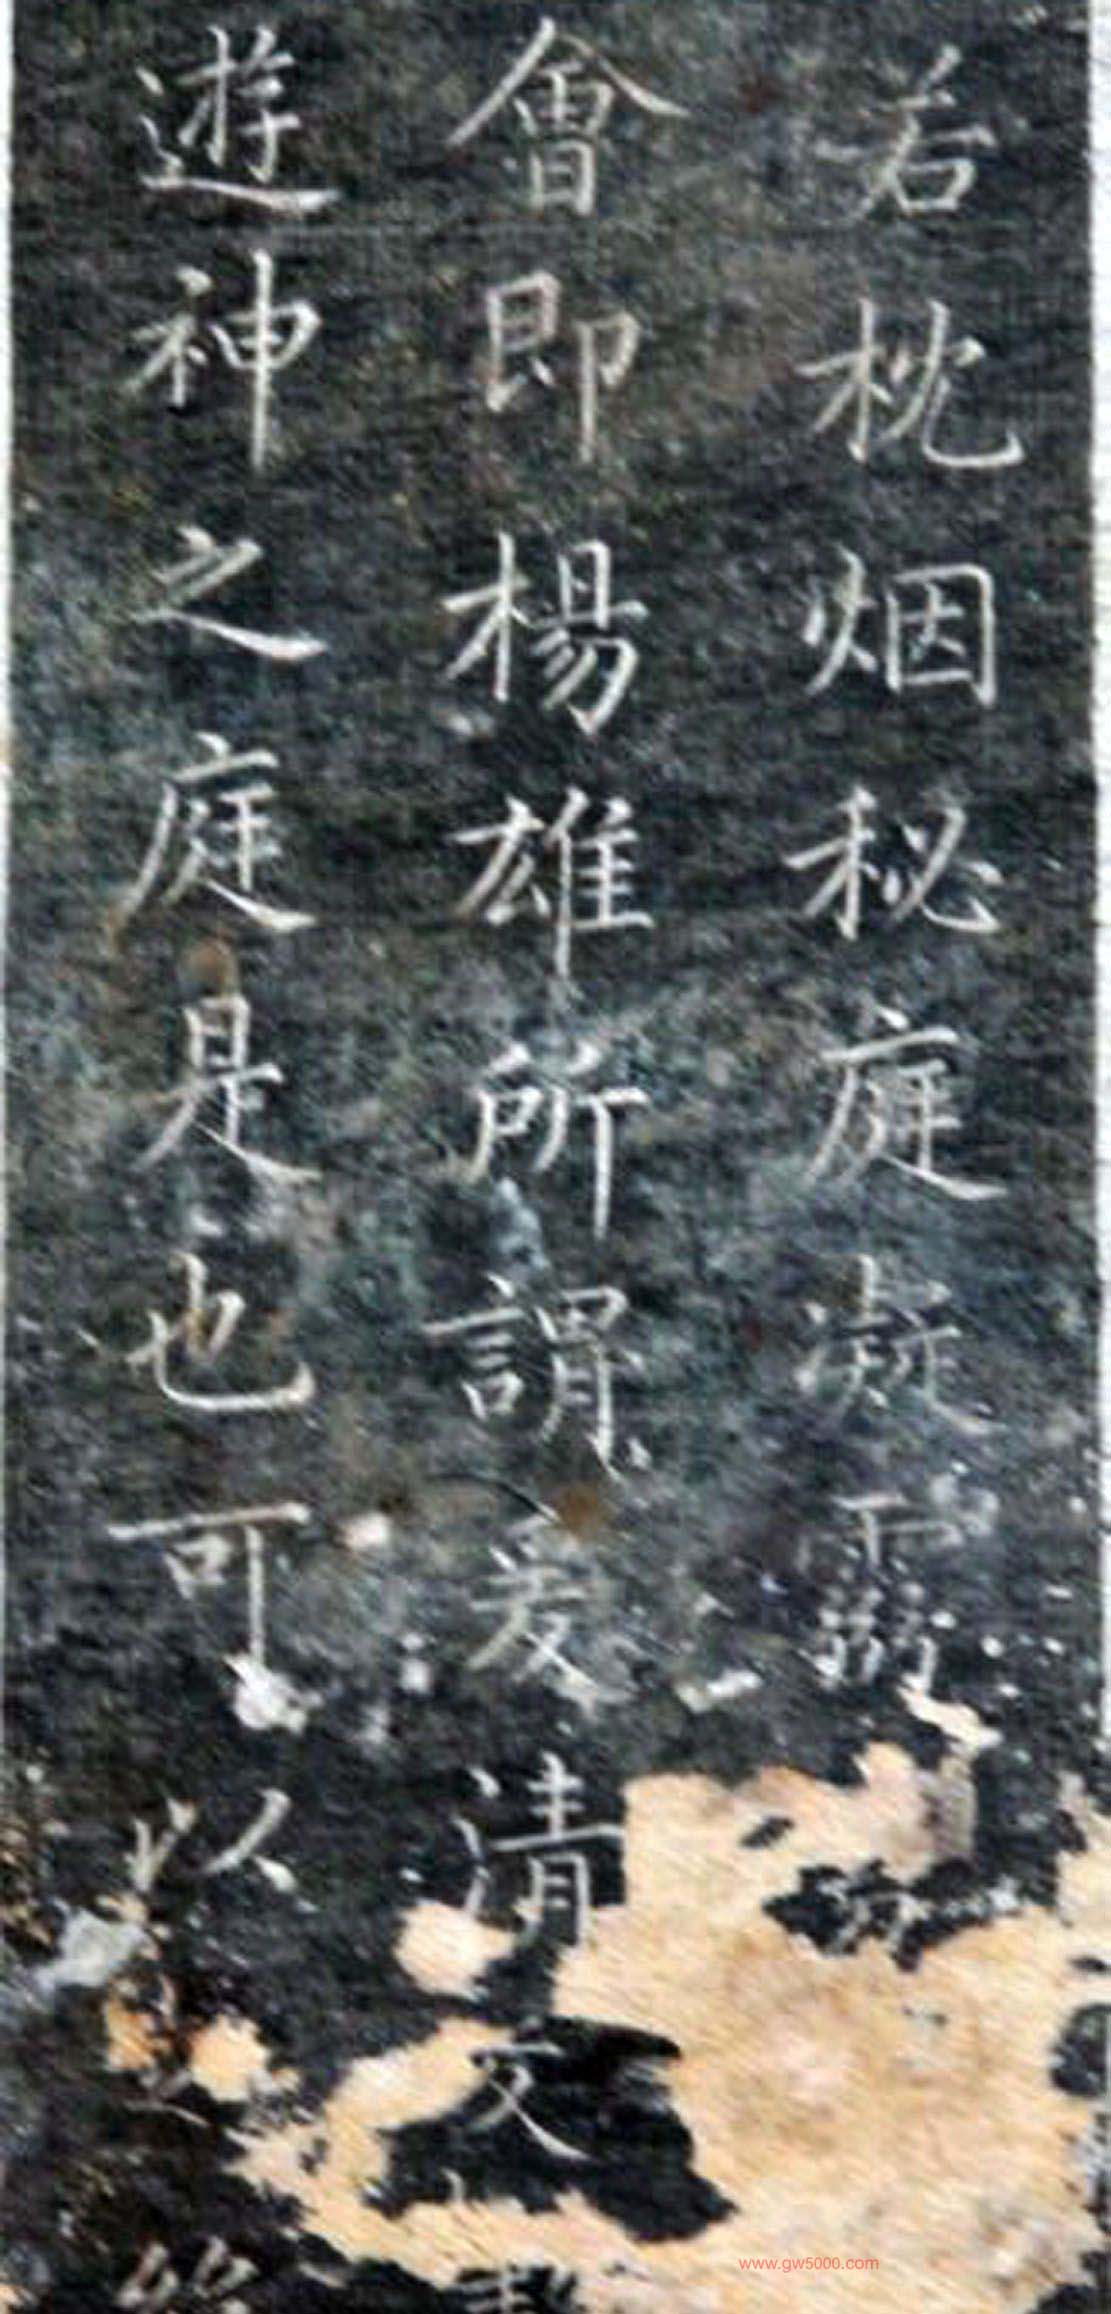 若枕烟秘庭凝霧
會即楊雄所謂爰清爰
遊神之庭是也可以
www.gw5000.com